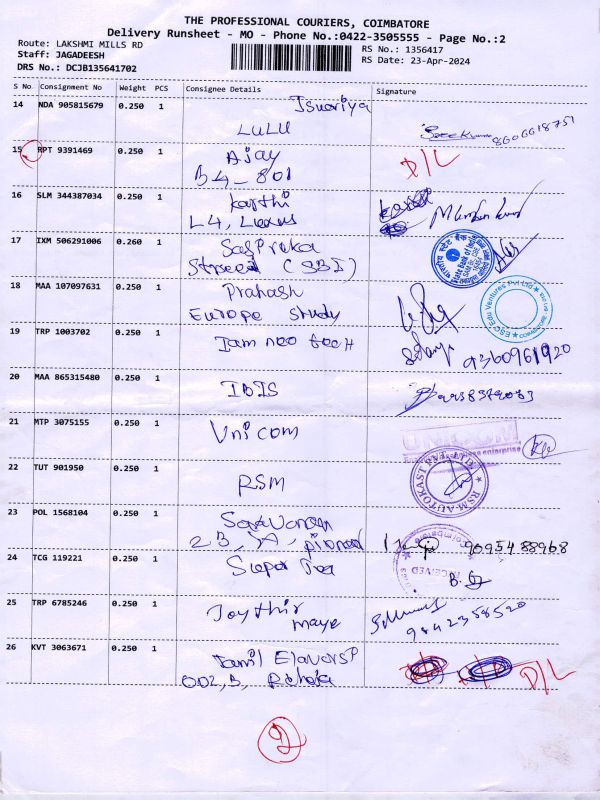 THE PROFESSIONAL COURIERS, COIMBATORE
Delivery Runsheet - MO - Phone No.:0422-3505555 - Page No.:2
Route: LAKSHMI MILLS RD
RS No.: 1356417
Staff: JAGADEESH
RS Date: 23-Apr-2024
DRS No.: DCJB135641702
S No. Consignment No Weight PCS Consignee Details Signature
14 NDA 905815679 0.250 1 Isuariya
LULU 8606618751
15 RPT 9391469 0.250 1 Ajay D/L
B4-801
16 SLM 344387034 0.250 1 karthi
L4, Lexus
17 IXM 506291006 0.260 1
Street (SBI)
18 MAA 107097631 0.250 1 Prakash
Europe Study
19 TRP 1003702 0.250 1 Iam neo tech 9360961920
20 MAA 865315480 0.250 1 IBIS
21 MTP 3075155 0.250 1 Unicom
UNICOM
22 TUT 901950 0.250 1 RSM
RSM AUTOKAST PVT LTD
23 POL 1568104 0.250 1 Saravanan 9095488968
24 TCG 119221 0.250 1 Super Tea
RECEIVED
25 TRP 6785246 0.250 1 Joythir
maye 9842358520
26 KVT 3063671 0.250 1 Tamil D/L
002,B,
2